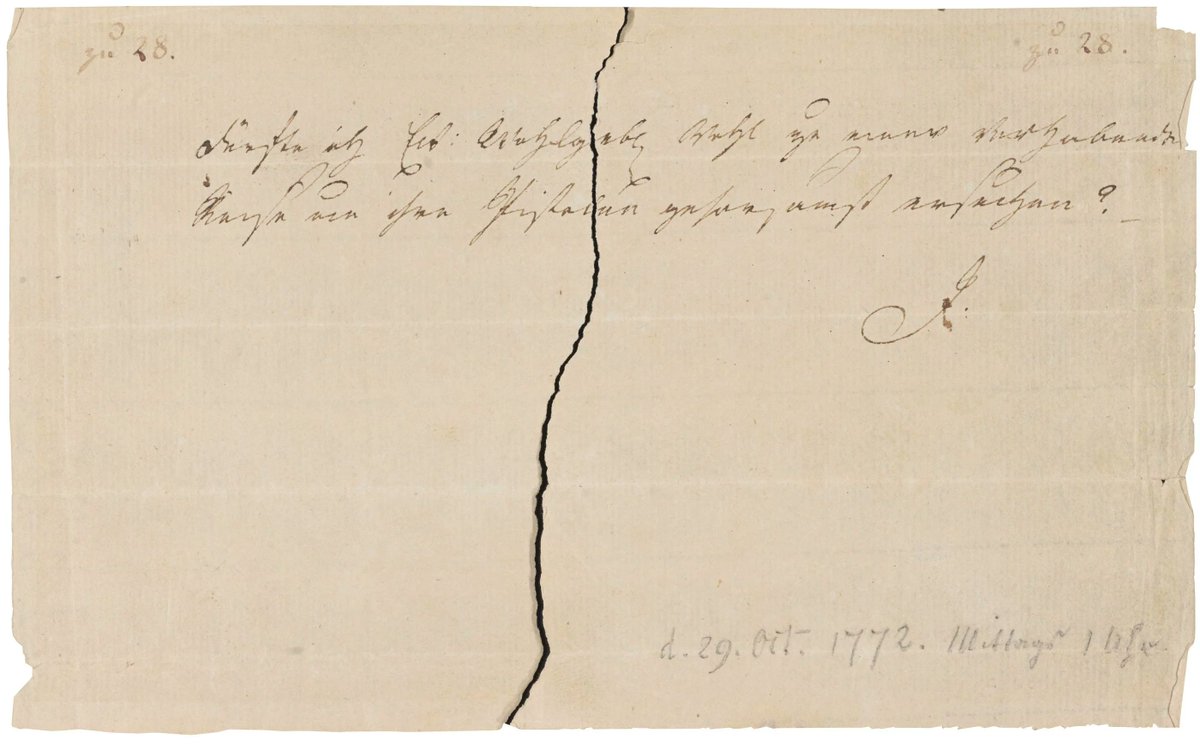 zu 28. zu 28.
Dürfte ich Ew: Wohlgeb. wohl zu einer vorhabenden
Reise um ihre Pistolen gehorsamst ersuchen?
J.
d. 29. Oct. 1772. Mittags 1 Uhr.